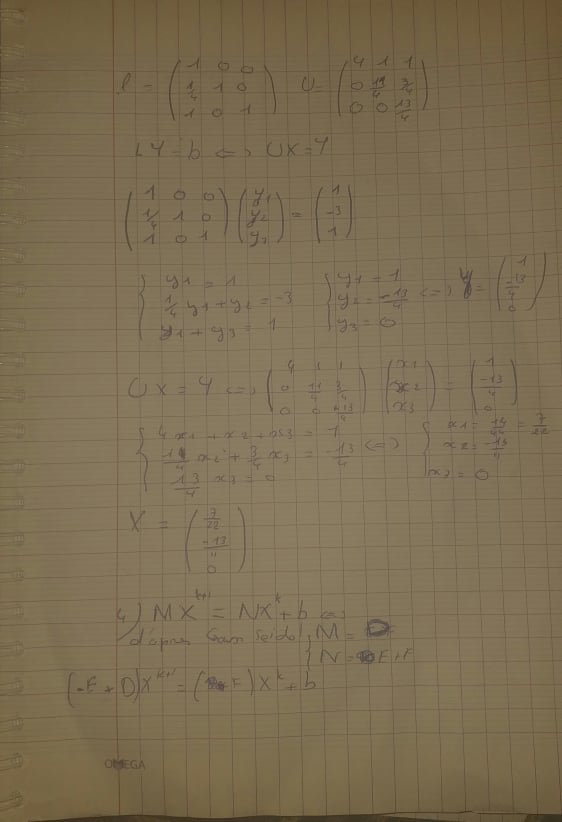 L = ( 1 0 0 ; 1/4 1 0 ; 1 0 1 ) U = ( 4 1 1 ; 0 11/4 3/4 ; 0 0 13/4 )
LY = b <=> UX = Y
( 1 0 0 ; 1/4 1 0 ; 1 0 1 ) ( y1 ; y2 ; y3 ) = ( 1 ; -3 ; 1 )
{ y1 = 1 { y1 = 1
1/4 y1 + y2 = -3 y2 = -13/4 <=> Y = ( 1 ; -13/4 ; 0 )
y1 + y3 = 1 y3 = 0
UX = Y <=> ( 4 1 1 ; 0 11/4 3/4 ; 0 0 13/4 ) ( x1 ; x2 ; x3 ) = ( 1 ; -13/4 ; 0 )
{ 4x1 + x2 + x3 = 1 { x1 = 14/44 = 7/22
11/4 x2 + 3/4 x3 = -13/4 <=> x2 = -13/11
13/4 x3 = 0 x3 = 0
X = ( 7/22 ; -13/11 ; 0 )
4) MX^k+1 = NX^k + b <=>
d'après Gauss Seidel { M =
N = E+F
(-E + D)X^k+1 = ( F)X^k + b
OMEGA